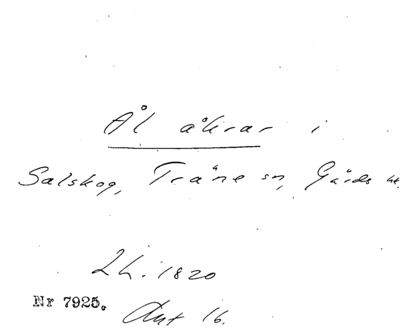 Ål åkrar i
Salskog, Träne sn, Gärds h
Lh. 1820
Nr 7925.
Ant 16.